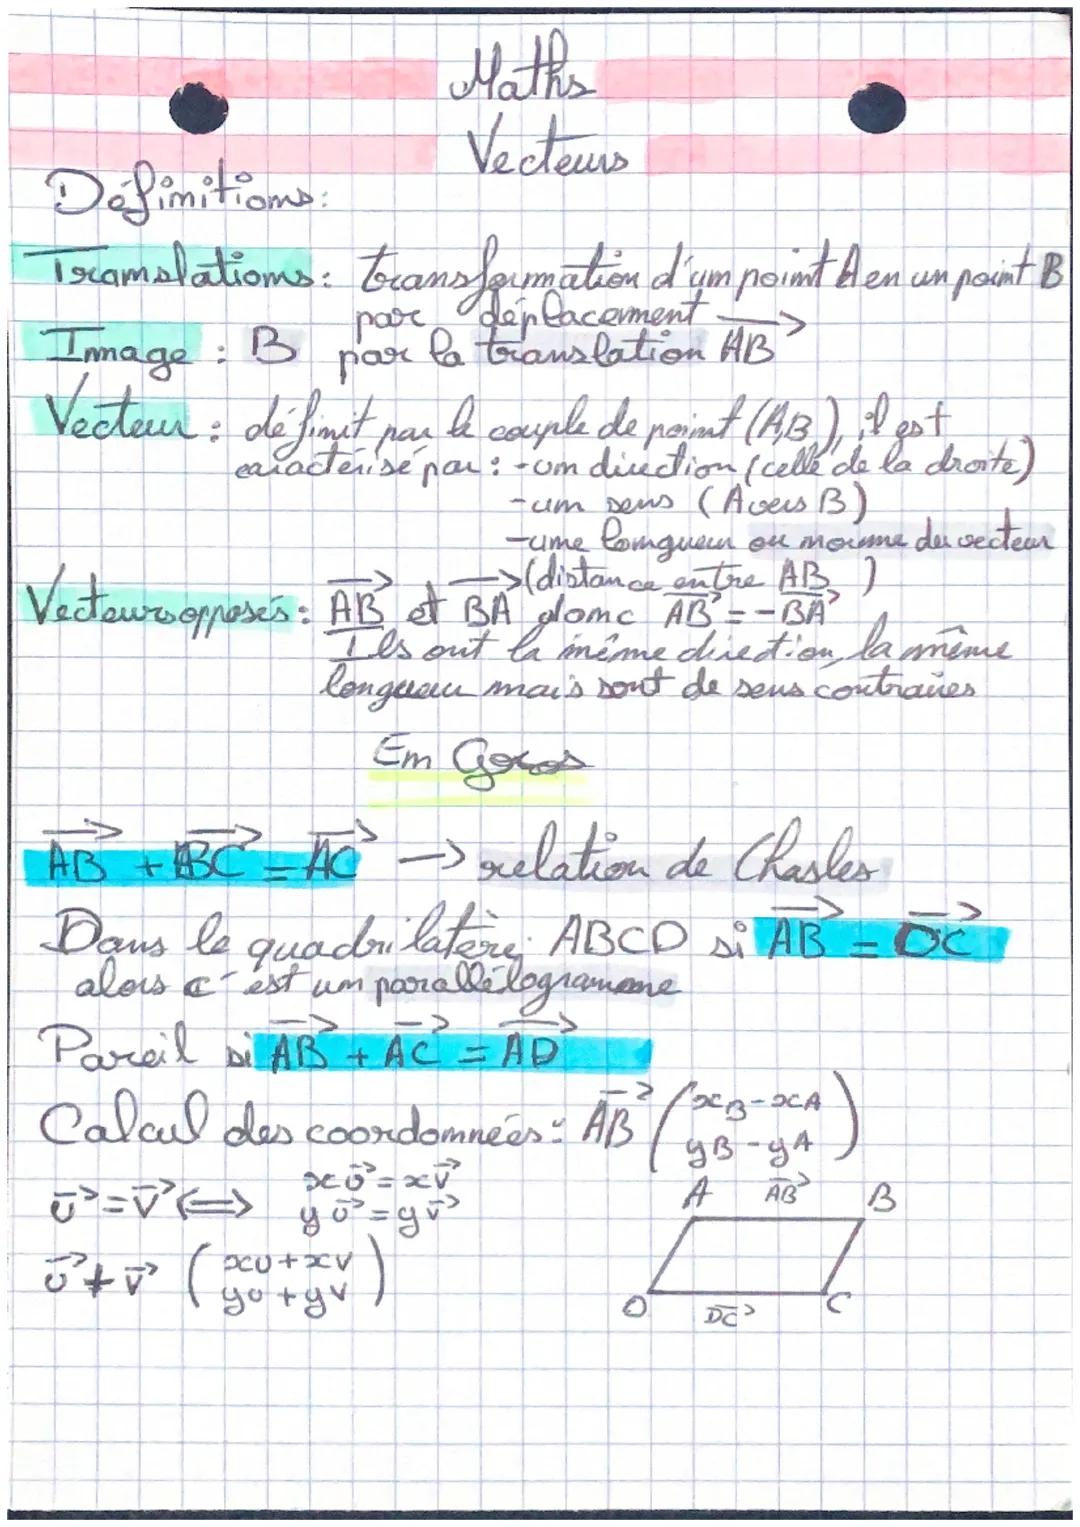 Maths
Vecteurs
Définitions:
Translations: transformation d'un point A en un point B
par déplacement
Image : B par la translation AB
Vecteur : définit par le couple de point (A,B), il est
caractérisé par : - un direction (celle de la droite)
- un sens (A vers B)
- une longueur ou norme du vecteur
(distance entre AB )
Vecteurs opposés: AB et BA donc AB = -BA
Ils ont la même direction, la même
longueur mais sont de sens contraires
En Gros
AB + BC = AC → relation de Chasles
Dans le quadrilatère ABCD si AB = DC
alors c'est un parallélogramme
Pareil si AB + AC = AD
Calcul des coordonnées: AB ( xB-xA
yB-yA )
u = v ⟺ xu = xv
yu = yv
A AB B
u + v ( xu+xv
yu+yv )
D DC C